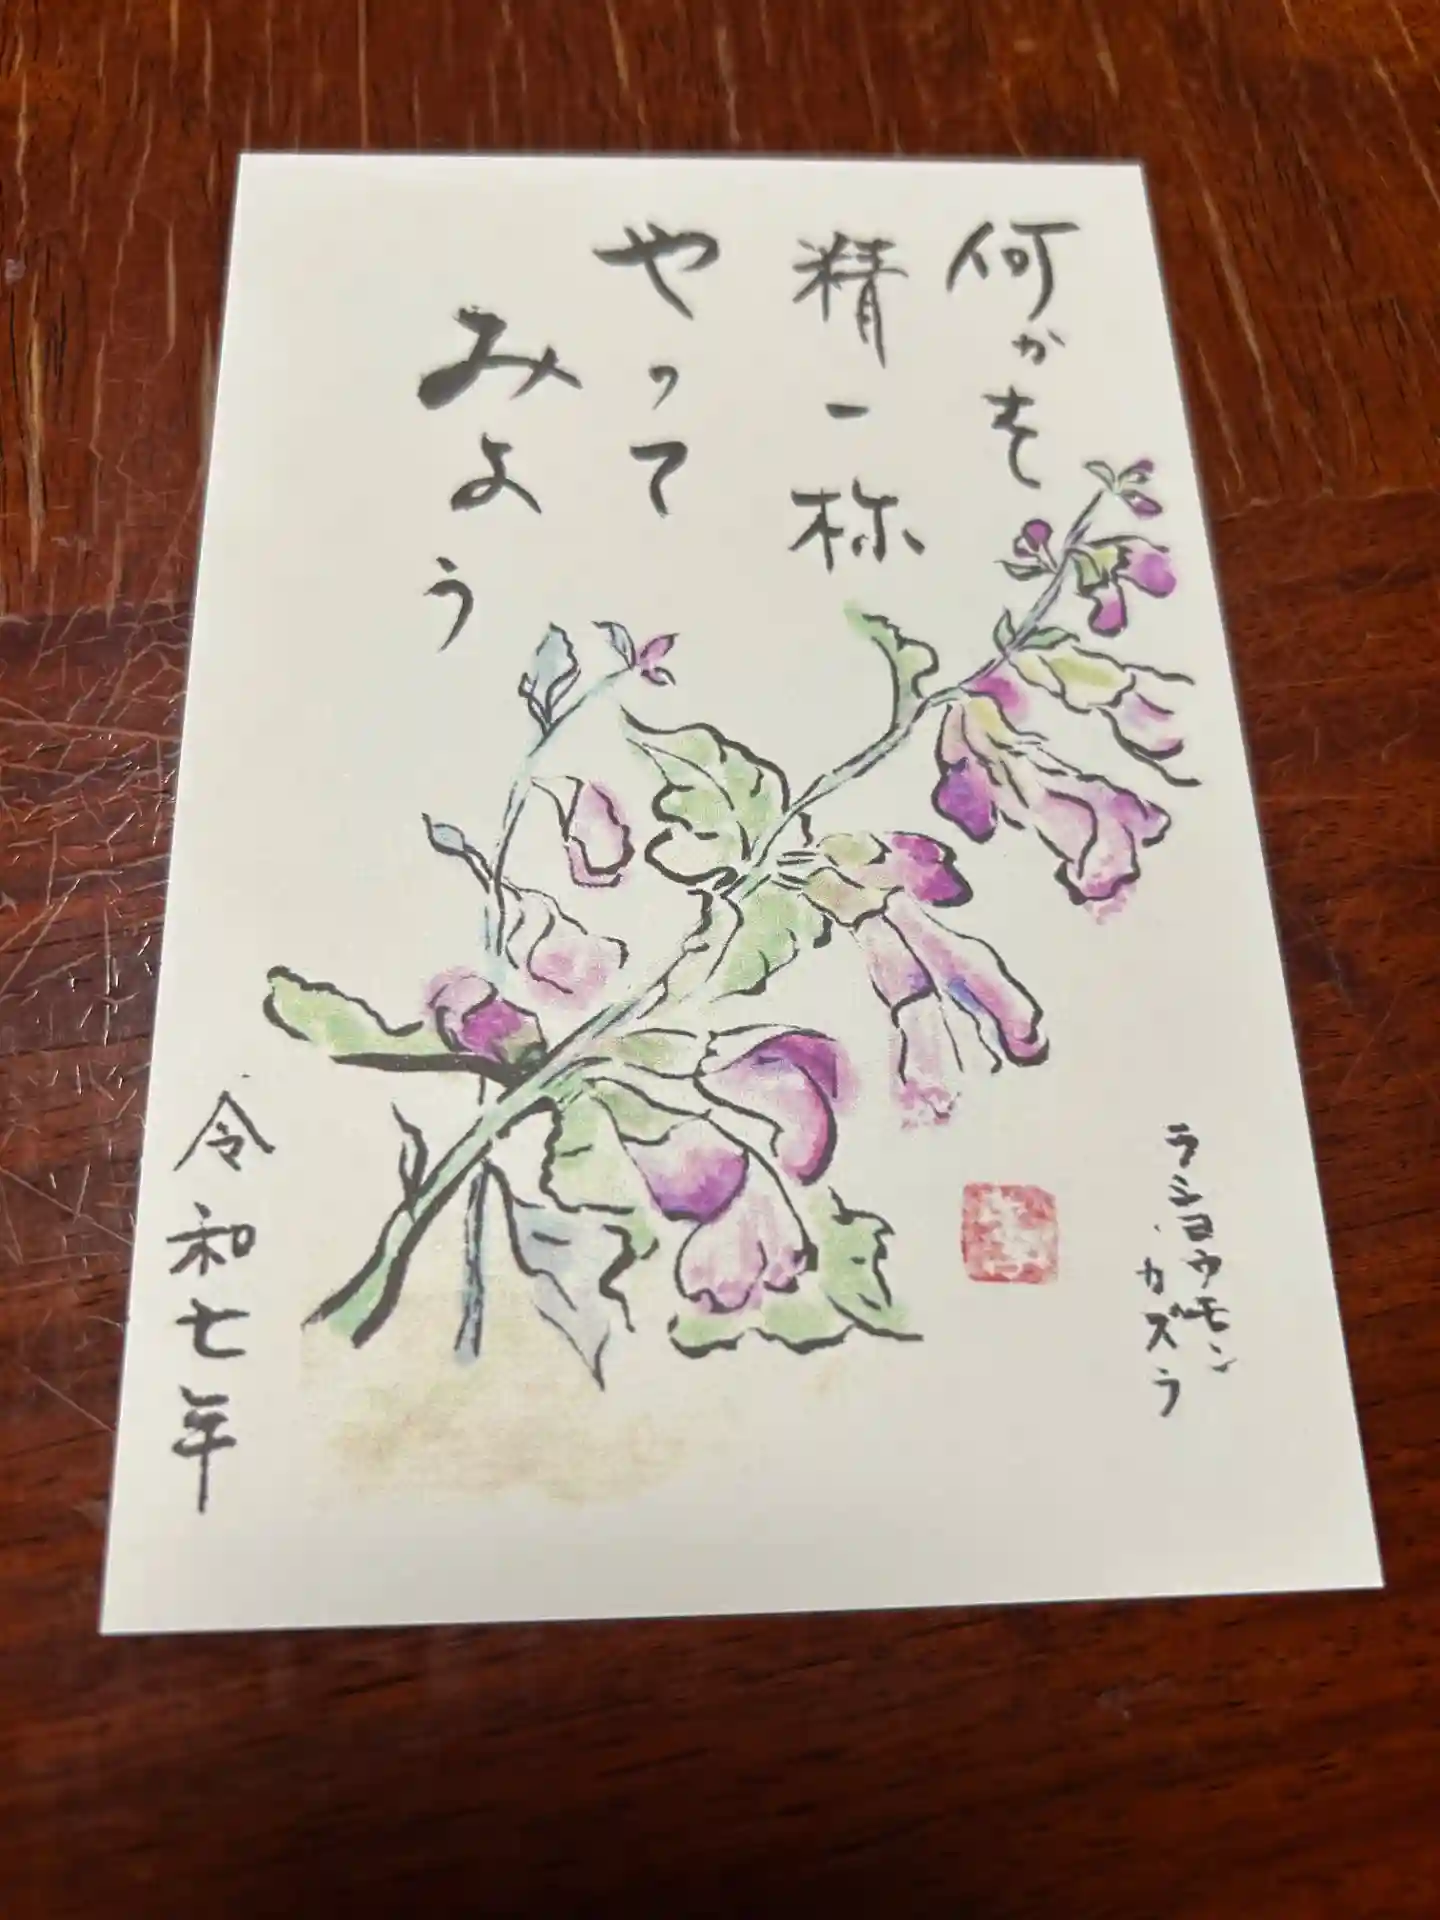 何かを
精一杯
やって
みよう
ラショウモン
カズラ
令和七年